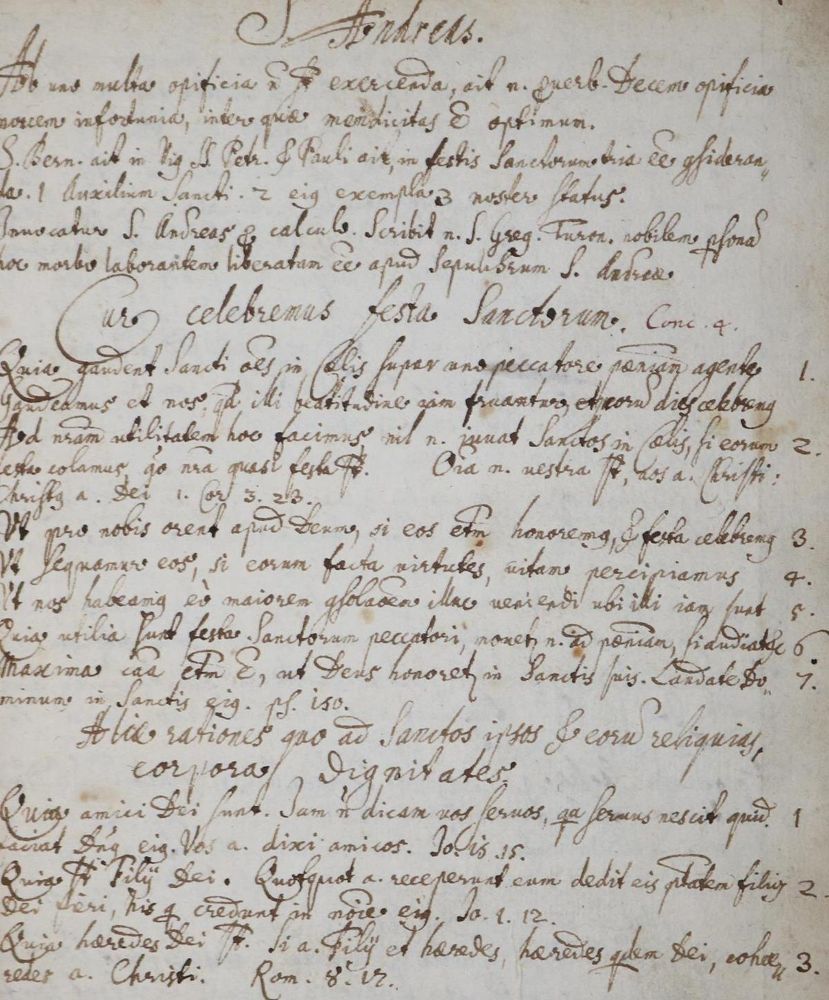 S Andreas.
Ab uno multa opificia ñ st̃ exercenda, ait n. proverb. Decem opificia
novem infortunia, inter quæ mendicitas ẽ optimum.
S. Bern. ait in Vig SS Petr. & Pauli ait, in festis Sanctorum tria eẽ gsideran„
da. 1 Auxilium Sancti. 2 eig exempla 3 noster status.
Invocatur S. Andreas p calculo. Scribit n. S. Greg. Turon. nobilem psonã
hoc morbo laborantem liberatam eẽ apud Sepulchrum S. Andreæ
Cur celebremus festa Sanctorum. Conc. 4.
Quia gaudent Sancti oẽs in Cælis super uno peccatore pæniam̃ agente 1.
Gaudeamus et nos, qd illi beatitudine iam fruantur, et eorũ dies celebremg
Ad nrãm utilitatem hoc facimus nil n. juvat Sanctos in Cælis, si eorum 2.
festa colamus, qõ nrã quasi festa st̃. Oĩa n. vestra st̃, vos a. Christi:
Christg a. Dei 1. Cor 3. 23.
Ut pro nobis orent apud Deum, si eos etm̃ honoremg, & festa celebremg 3.
Ut sequamur eos, si eorum facta virtutes, vitam percipiamus 4.
Ut nos habeamg eò maiorem gsolaõem illuc veniendi ubi illi iam sunt 5.
Quia utilia sunt festa Sanctorum peccatori, movet n. ad pæniam̃, si audiat 6
Maxima caã etm̃ ẽ, ut Deus honoret in Sanctis suis. Laudate Do„ 7.
minum in Sanctis eig. ps. 150.
Aliæ rationes quo ad Sanctos ipsos & eorũ reliquias,
corpora, Dignitates.
Quia amici Dei sunt. Jam ñ dicam vos servos, qa servus nescit quid 1
faciat Dñg eig. Vos a. dixi amicos. Jo. 15. 15.
Quia st̃ Filij Dei. Quotquot a. receperunt eum dedit eis ptãtem filios 2.
Dei fieri, his q credunt in nõie eig. Jo. 1. 12.
Quia hæredes Dei st̃. Si a. Filij et hæredes, hæredes qdem Dei, cohæ„ 3.
redes a. Christi. Rom. 8. 17.